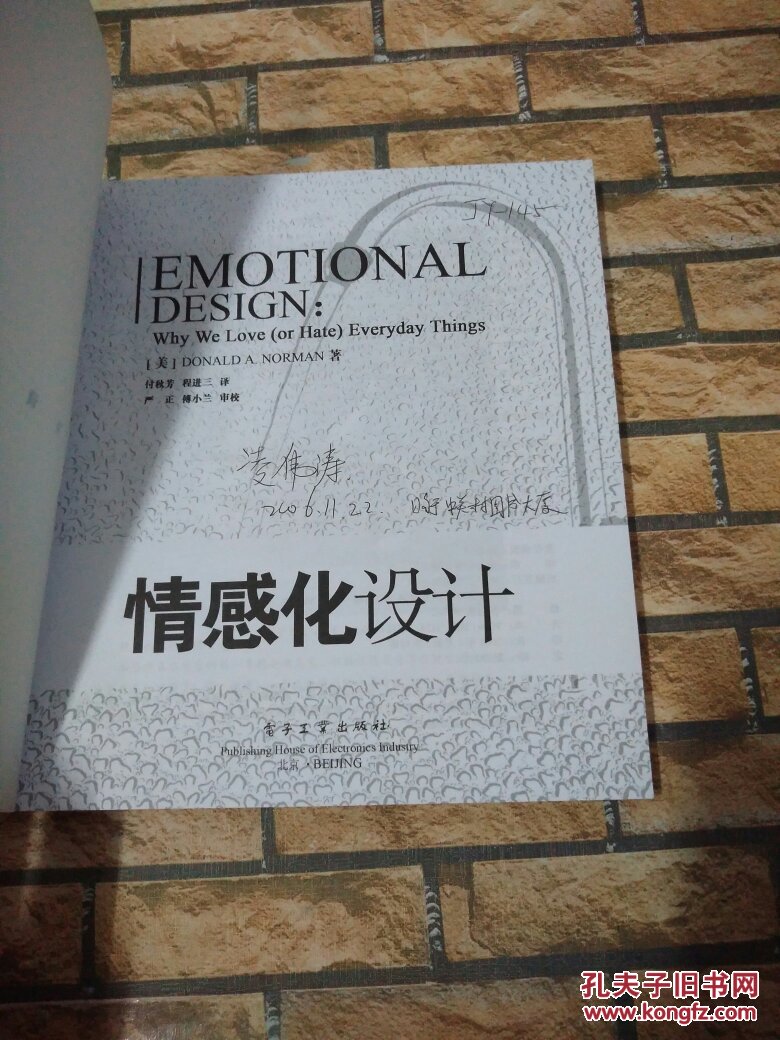 EMOTIONAL
DESIGN:
Why We Love (or Hate) Everyday Things
[美] DONALD A. NORMAN 著
付秋芳 程进三 译
严 正 傅小兰 审校
凌伟涛
2006.11.22. 购于中关村图书大厦
情感化设计
電子工業出版社
Publishing House of Electronics Industry
北京·BEIJING
孔夫子旧书网
www.kongfz.com